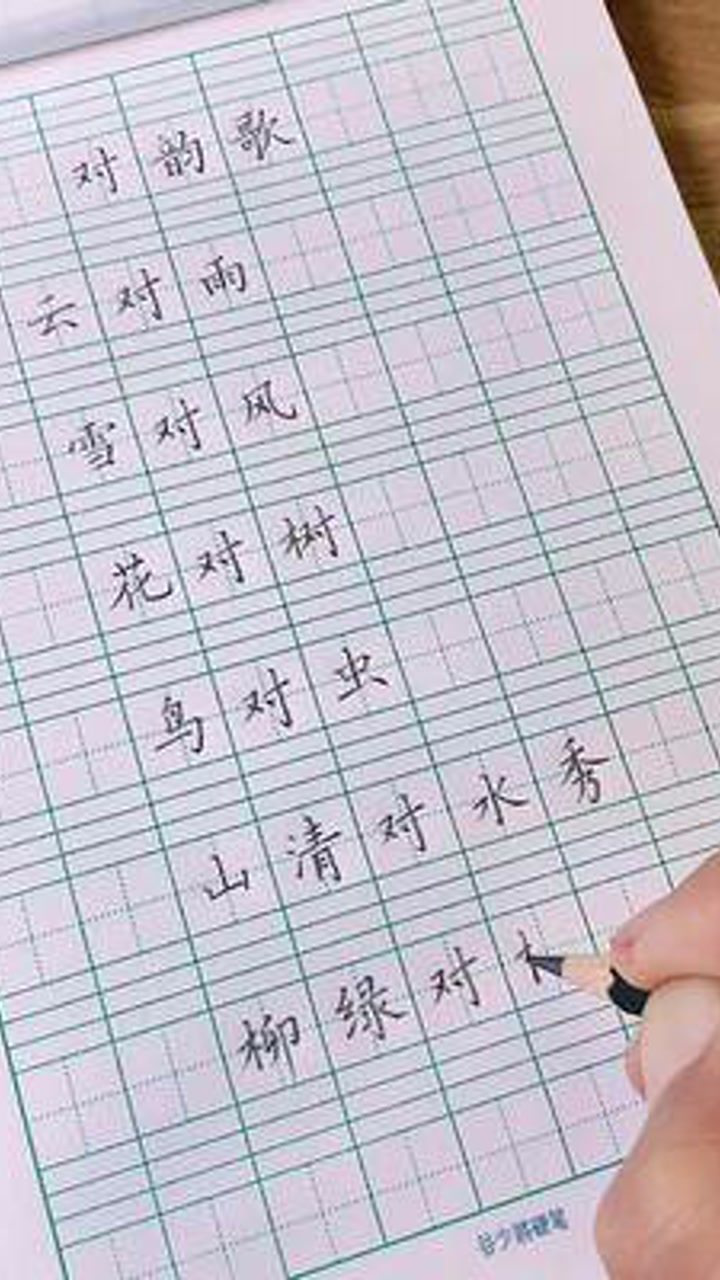 对韵歌
云对雨
雪对风
花对树
鸟对虫
山清对水秀
柳绿对